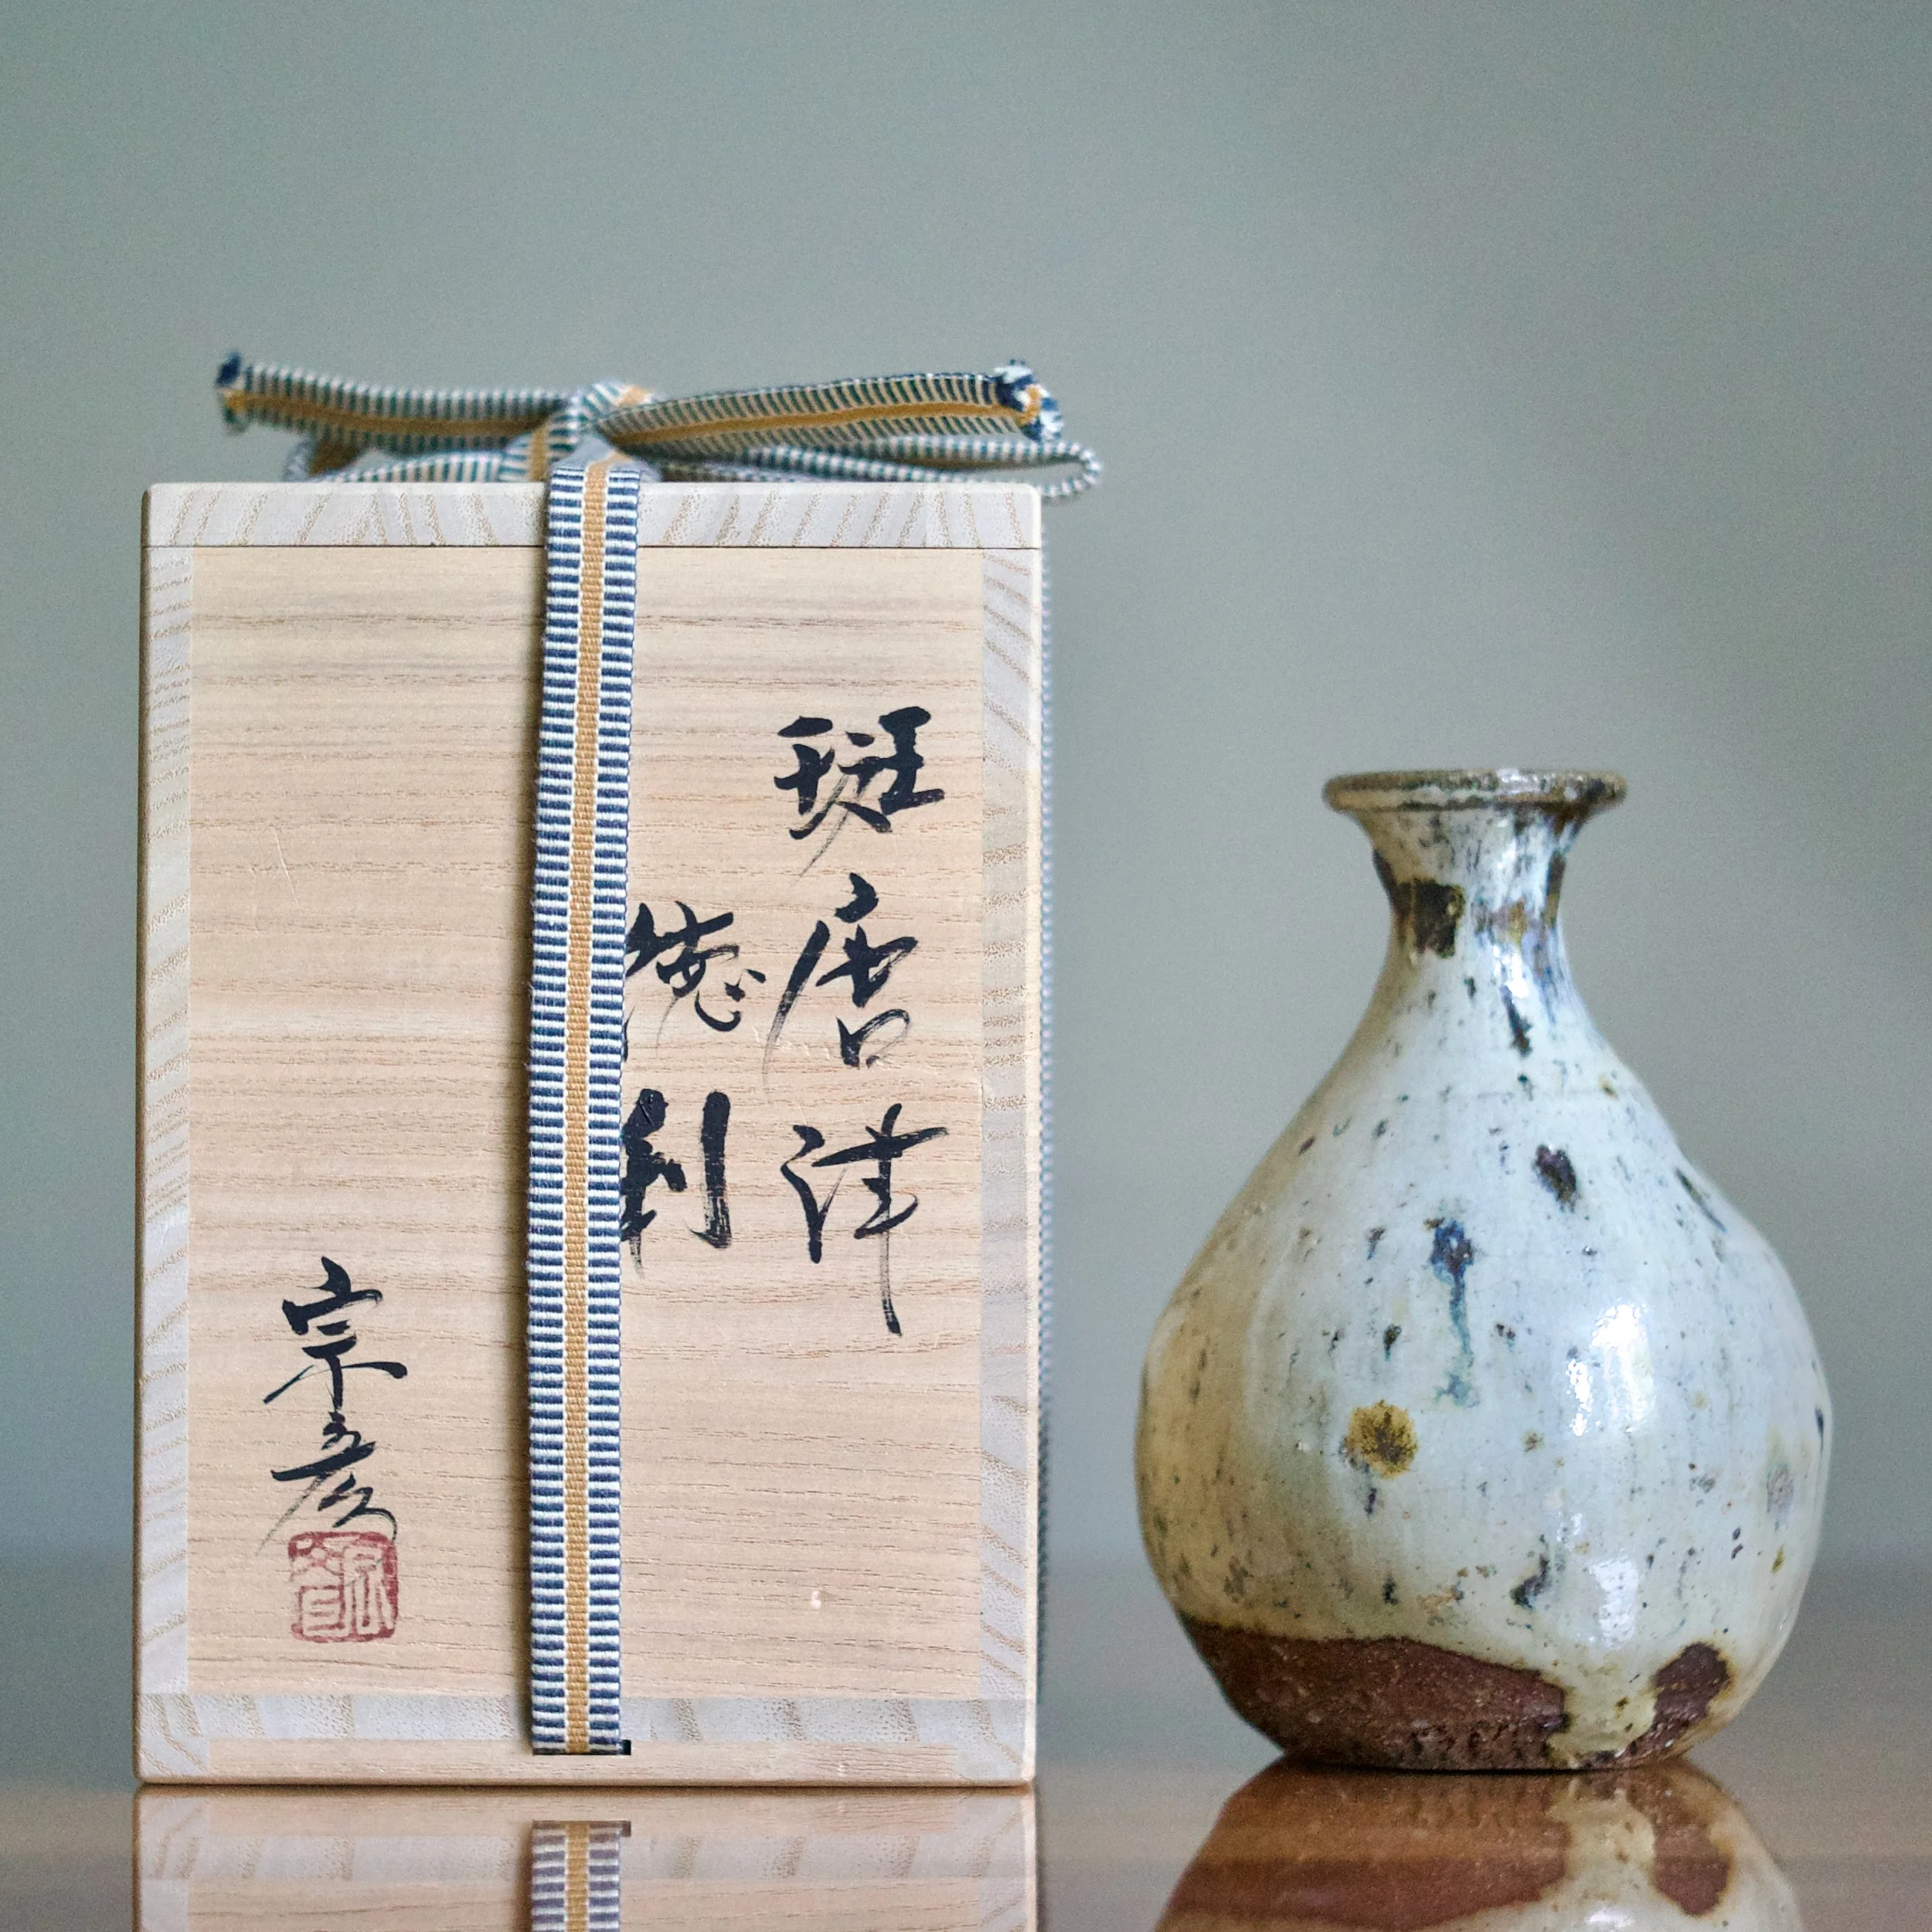 斑唐津
徳利
宗彦